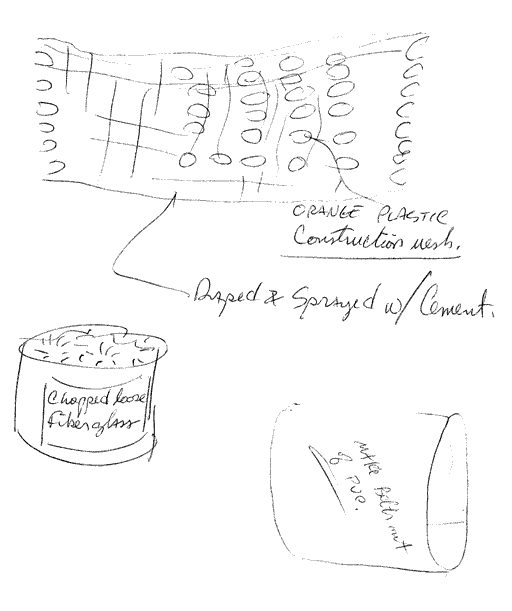 ORANGE PLASTIC
Construction mesh.
Draped & Sprayed w/ Cement.
Chopped loose
fiberglass
MAKE Belts out
of PVC.